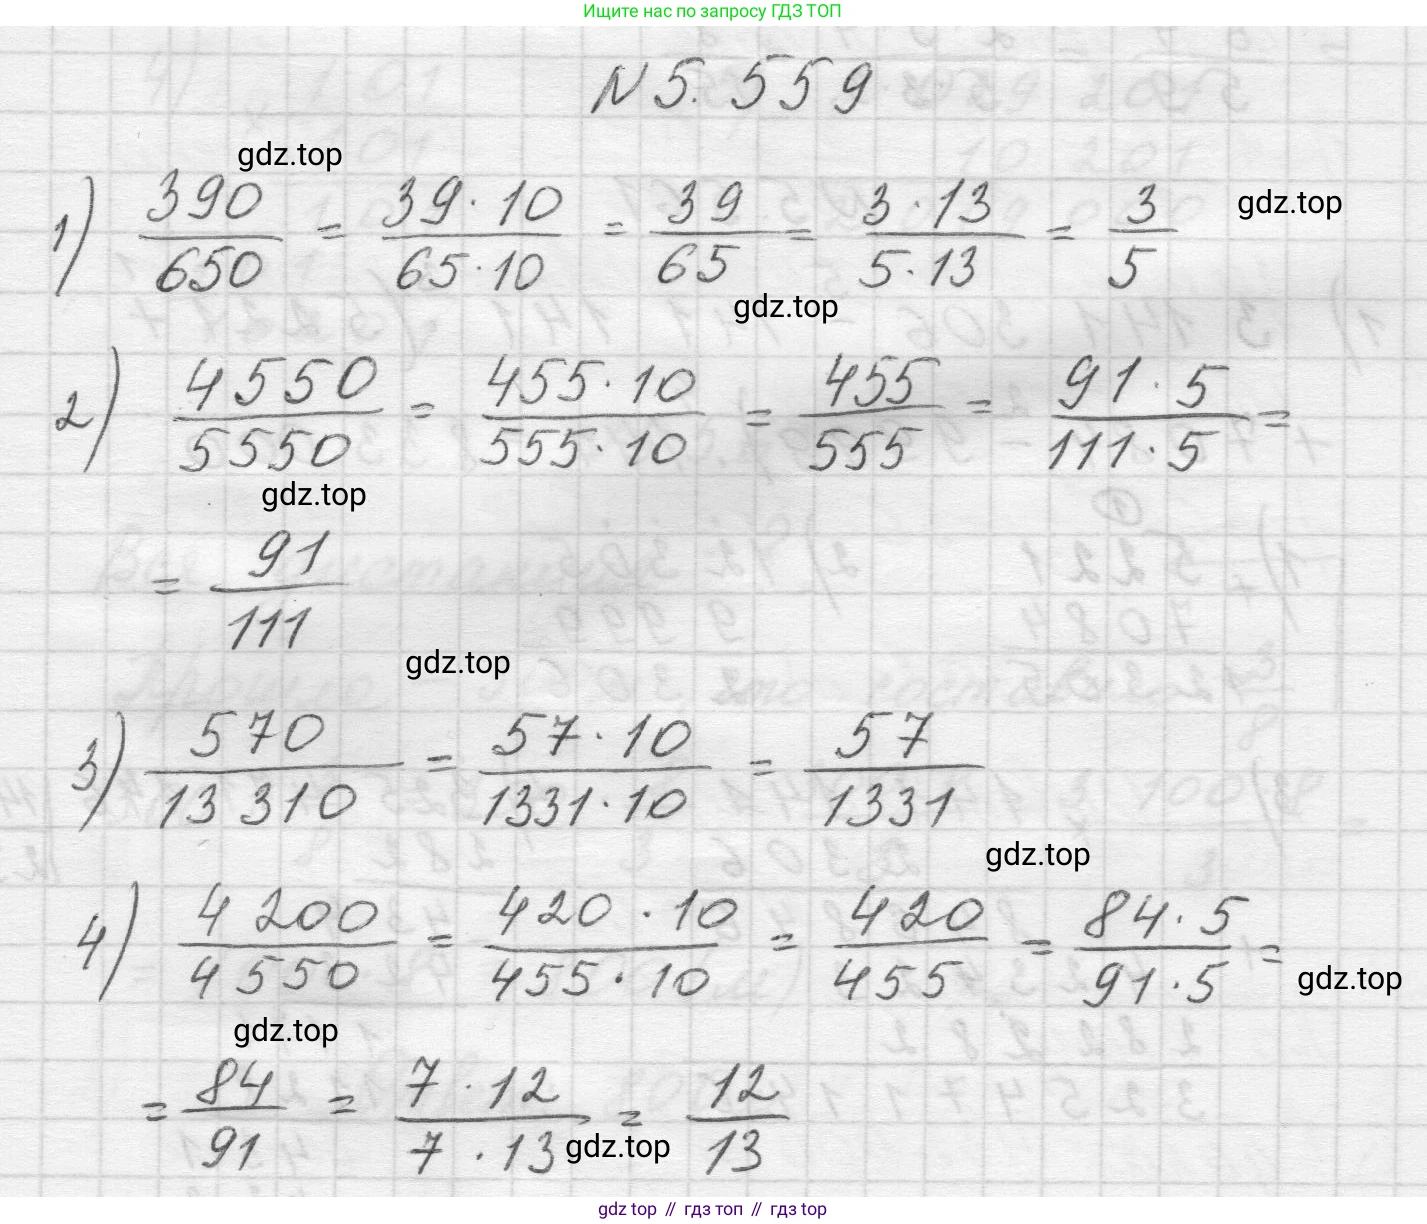 Ищите нас по запросу ГДЗ ТОП
N 5. 559
gdz.top
1) 390/650 = 39·10/65·10 = 39/65 = 3·13/5·13 = 3/5
gdz.top
gdz.top
2) 4550/5550 = 455·10/555·10 = 455/555 = 91·5/111·5 =
gdz.top
= 91/111
gdz.top
3) 570/13 310 = 57·10/1331·10 = 57/1331
gdz.top
4) 4 200/4 550 = 420·10/455·10 = 420/455 = 84·5/91·5 =
gdz.top
gdz.top
= 84/91 = 7·12/7·13 = 12/13
gdz.top
gdz top // гдз топ // гдз top